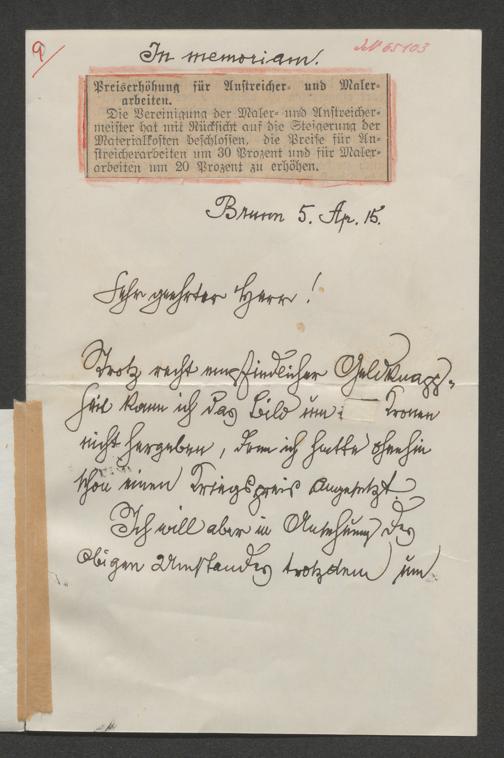 9
In memoriam.
Preiserhöhung für Anstreicher- und Maler-
arbeiten.
Die Vereinigung der Maler- und Anstreicher-
meister hat mit Rücksicht auf die Steigerung der
Materialkosten beschlossen, die Preise für An-
streicherarbeiten um 30 Prozent und für Maler-
arbeiten um 20 Prozent zu erhöhen.
Brunn 5. Ap. 15.
Sehr geehrter Herr!
Trotz recht empfindlicher Geldknapp-
heit kann ich das Bild um Kronen
nicht hergeben, denn ich hatte ohnehin
schon einen Kriegspreis angesetzt
Ich will aber in Ansehung des
obigen Umstandes trotzdem um